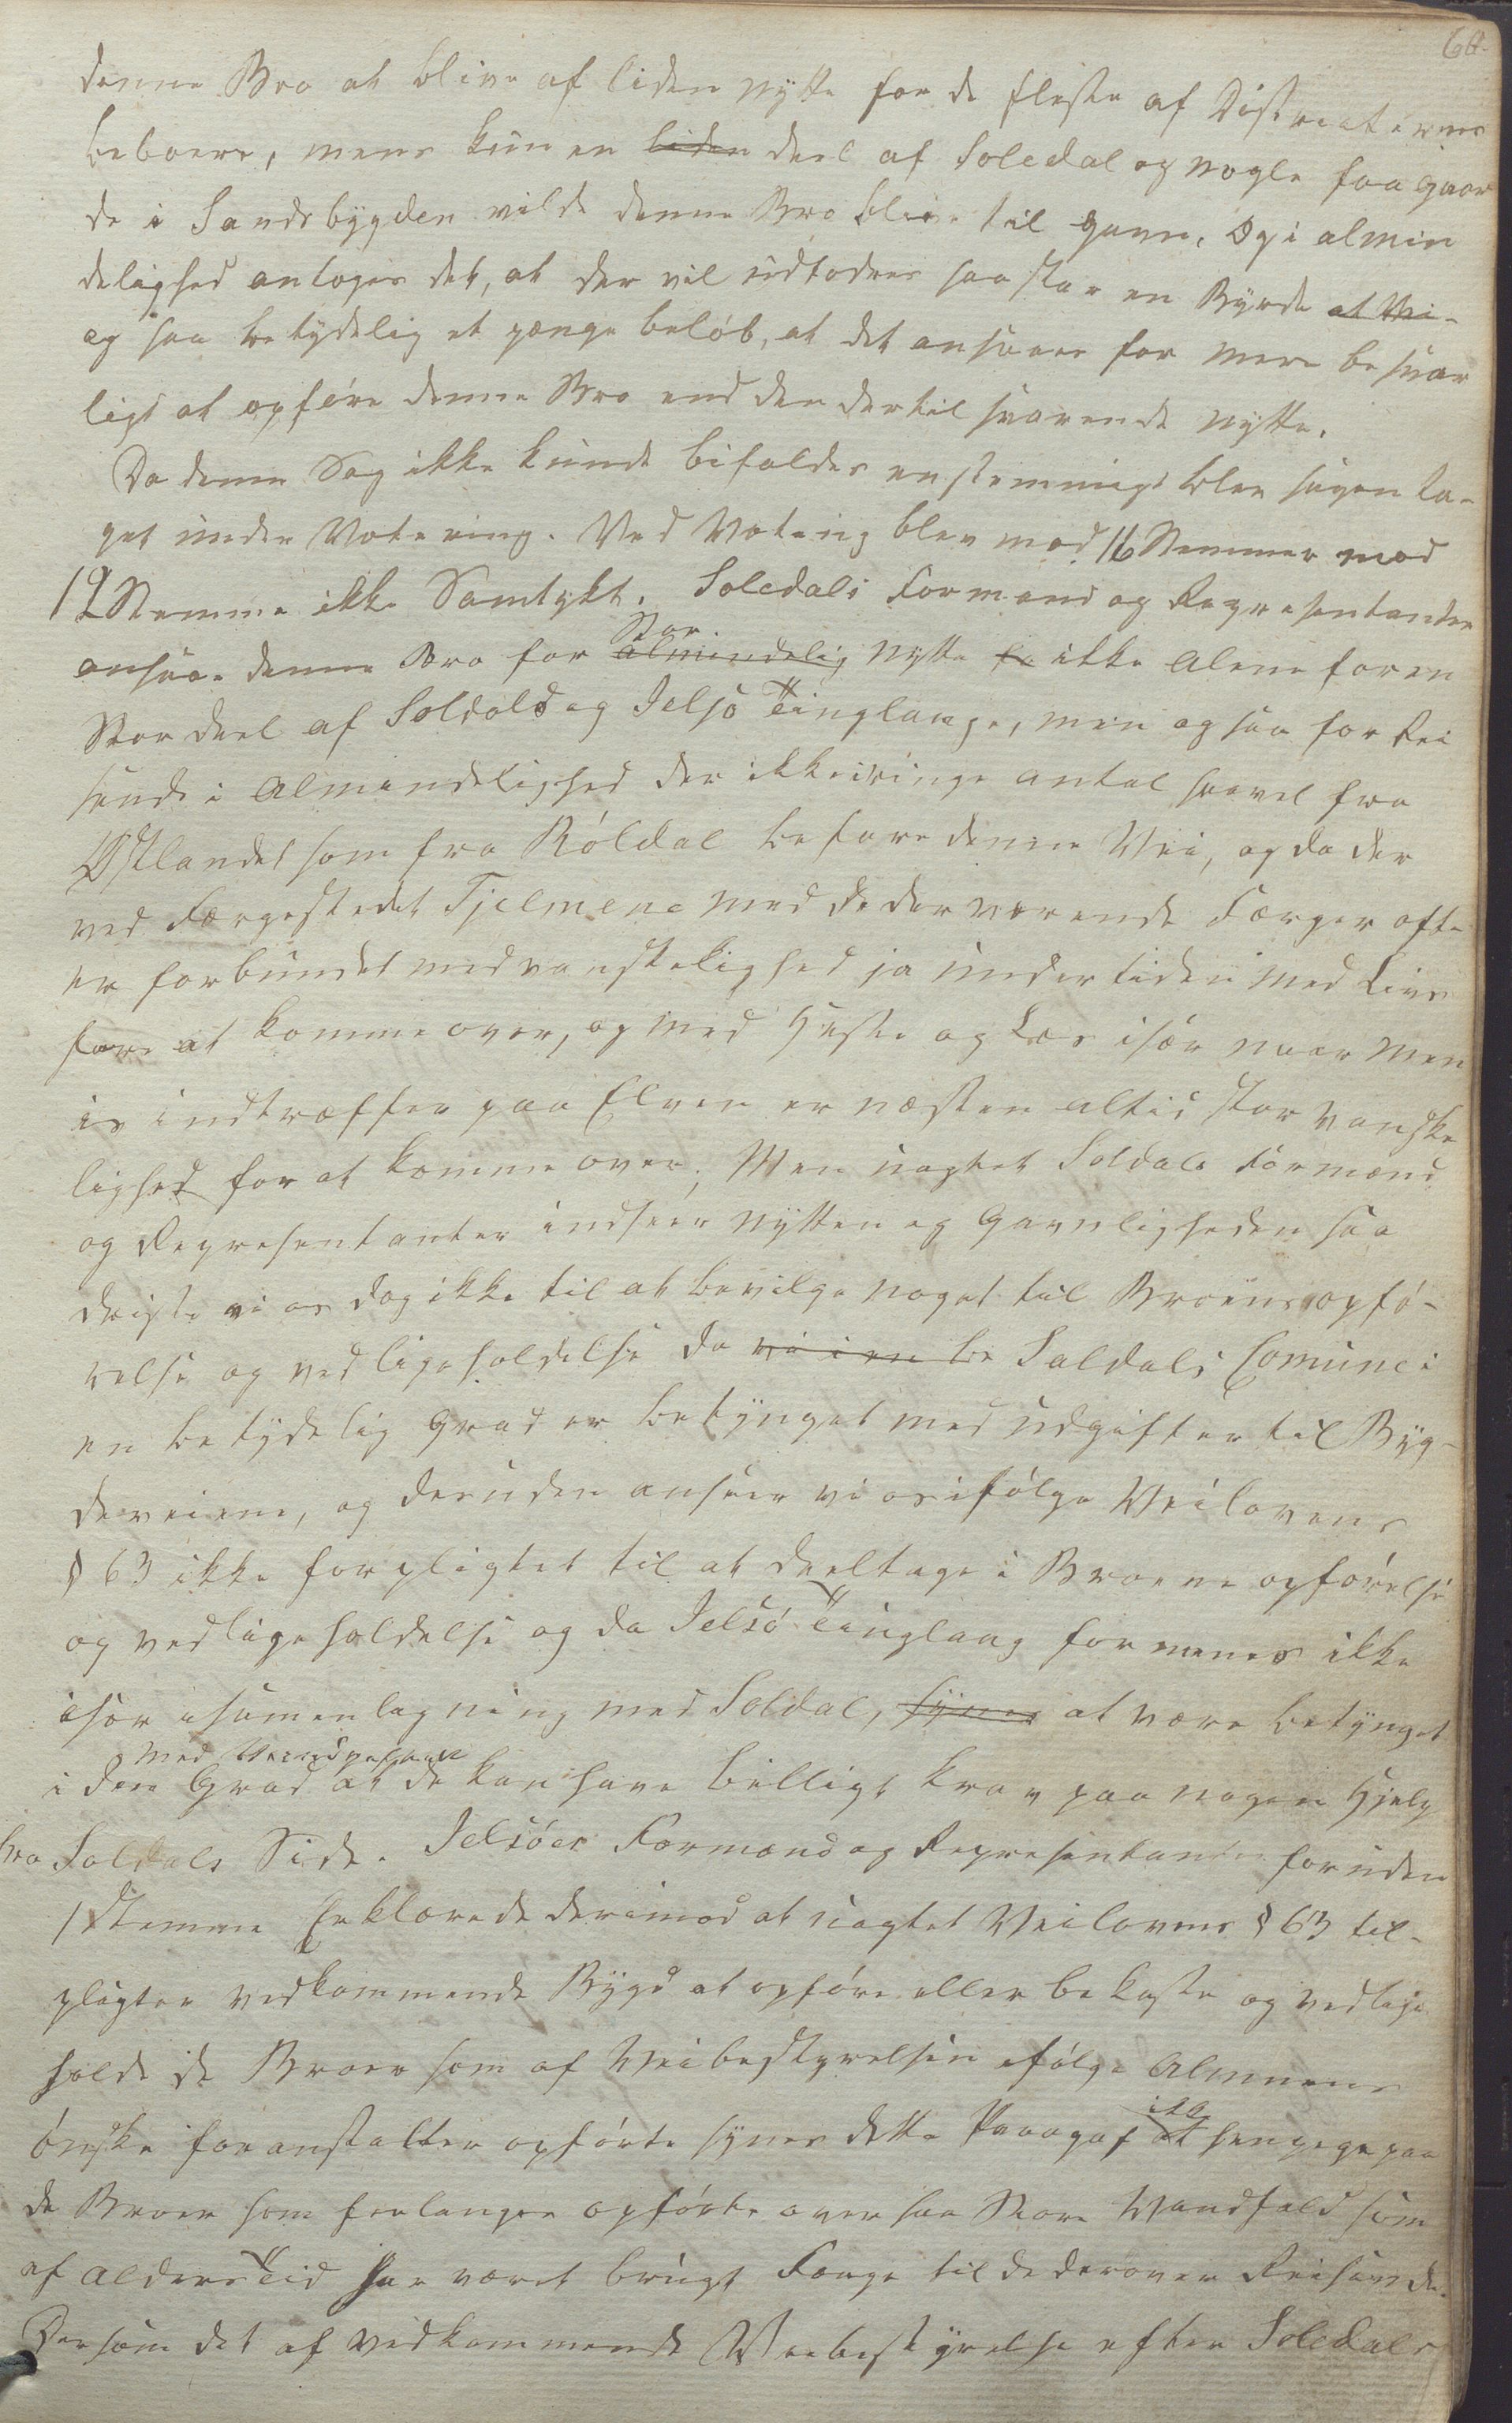 denne Bro at blive af liden nytte for de fleste af Districternes
beboere, mens kun en liden deel af Soledal og nogle faa gaar
de i Sandsbygden vilde denne Bro blive til gavn. Og i almin
delighed antoges det, at der vil udfodres saa stor en Byrde at Vei-
og saa betydelig et penge beløb, at det ansaaes for mere besvær
ligt at opføre denne Bro end den dertil svarende nytte.
Da denne Sag ikke kunde bifaldes enstemmigt blev sagen ta-
get under Votering. Ved Voting blev mod 16 Stemmer mod
12 Stemme ikke Samtykt. Soledals Formænd og Repræsentanter
ansaae denne Bro for almindelig nytte ikke alene for en
Stor.
Stor deel af Soldals og Jelsø Tinglauge, men og saa for Rei
sende i Almindelighed der ikke i ringe antal saavel fra
Østlandet som fra Röldal befare denne Vei, og da der
ved Færgestedet Tjelmene med de derværende Færger ofte
er forbundet med vanskelighed ja undertiden med Livs
fare at komme over, og med Heste og Læs især naar men
is indtræffer paa Elven er næsten altid stor vanske
lighed for at komme over. Men uagtet Soldals Formænd
og Repræsentanter indseer nytten og Gavnligheden saa
driste vi os dog ikke til at bevilge noget til Broens opfø-
relse og vedligeholdelse da vi i en be Saldals Comune i
en betydelig Grad er betynget med udgifter til Byg-
deveiene, og desuden anseer vi os ifølge Veilovens
§ 63 ikke forpligtet til at deeltage i Broens opførelse
og vedligeholdelse og da Jelsø Tinglaug formenes ikke
især i samenlagning med Soldal, synes at være betynget
med
i den Grad at de kan have billigt krav paa nogen Hjelp
fra Soldals Side. Jelsøes Formænd og Repræsentanter foruden
1 Stemme Erklærede derimod at uagtet Veilovens § 63 til-
pligter vedkommende Bygd at opføre eller bekoste og vedlige
holde de Broer som af Veibestyrelsen efølge Almuens
ønske foranstalter opførte synes dette Paragraf at henpege paa
ikke
de Broer som forlanges opførte over saa Store Vandfald som
af Alders Tid har været brugt Færge til de derover Reisende.
Dersom det af vedkommende Veibestyrelse efter Soledals